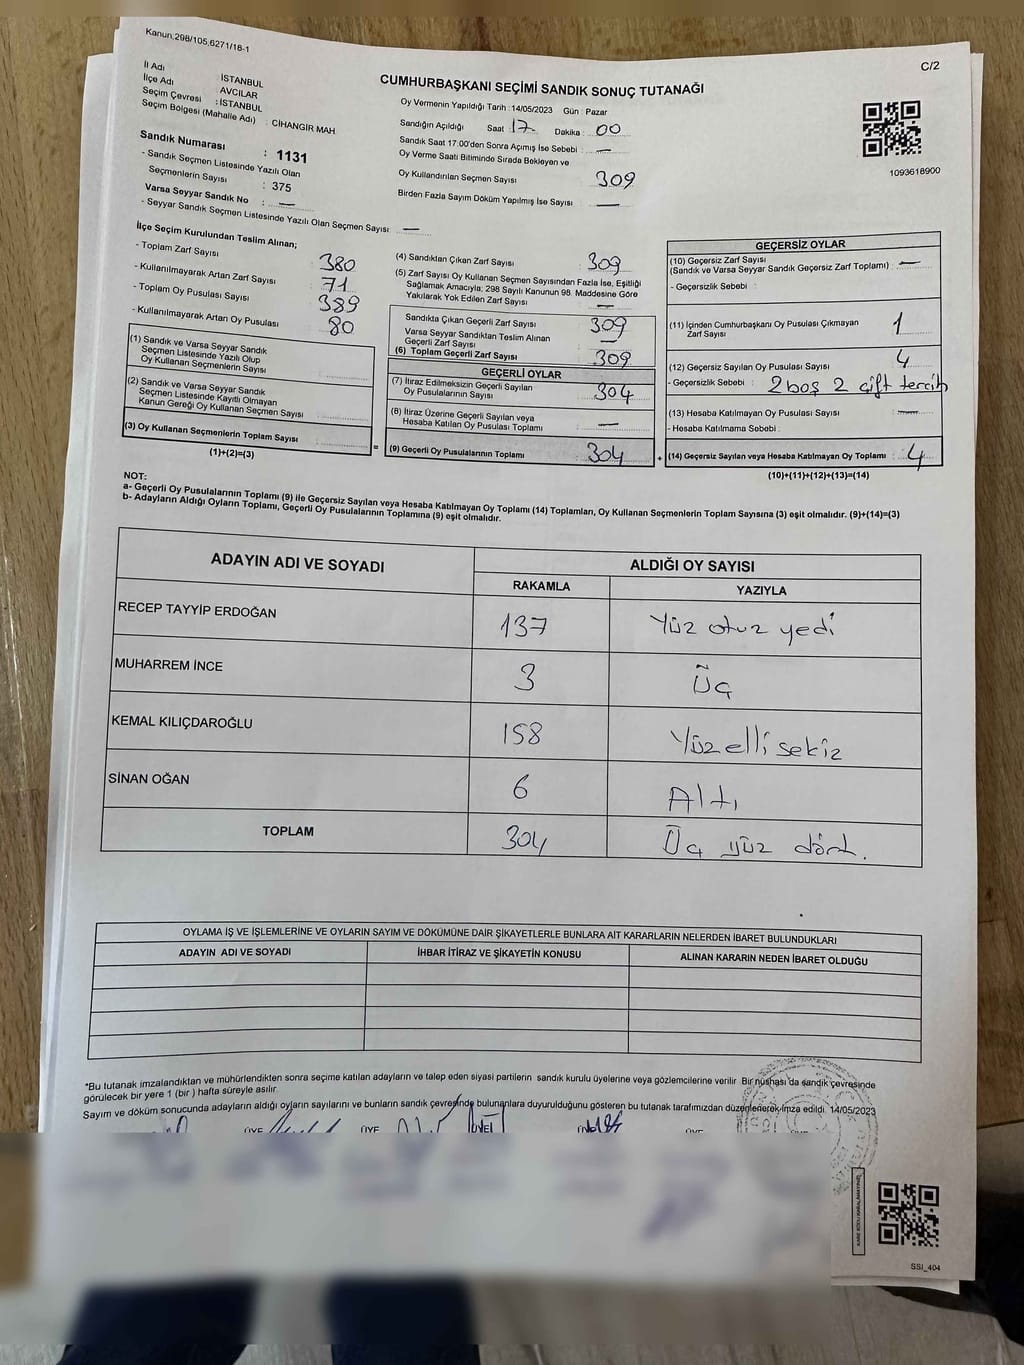 Kanun:298/105,6271/16-1
C/2
CUMHURBAŞKANI SEÇİMİ SANDIK SONUÇ TUTANAĞI
İl Adı : İSTANBUL
İlçe Adı : AVCILAR
Seçim Çevresi : İSTANBUL
Seçim Bölgesi (Mahalle Adı) : CİHANGİR MAH
Sandık Numarası : 1131
- Sandık Seçmen Listesinde Yazılı Olan
Seçmenlerin Sayısı : 375
Varsa Seyyar Sandık No : —
- Seyyar Sandık Seçmen Listesinde Yazılı Olan Seçmen Sayısı : —
Oy Vermenin Yapıldığı Tarih : 14/05/2023 Gün : Pazar
Sandığın Açıldığı Saat : 17 Dakika : 00
Sandık Saat 17:00'den Sonra Açımış İse Sebebi : —
Oy Verme Saati Bitiminde Sırada Bekleyen ve
Oy Kullandırılan Seçmen Sayısı 309
Birden Fazla Sayım Döküm Yapılmış İse Sayısı —
1093618900
İlçe Seçim Kurulundan Teslim Alınan;
- Toplam Zarf Sayısı 380
- Kullanılmayarak Artan Zarf Sayısı 71
- Toplam Oy Pusulası Sayısı 389
- Kullanılmayarak Artan Oy Pusulası 80
(1) Sandık ve Varsa Seyyar Sandık
Seçmen Listesinde Yazılı Olup
Oy Kullanan Seçmenlerin Sayısı :
(2) Sandık ve Varsa Seyyar Sandık
Seçmen Listesinde Kayıtlı Olmayan
Kanun Gereği Oy Kullanan Seçmen Sayısı :
(3) Oy Kullanan Seçmenlerin Toplam Sayısı :
(1)+(2)=(3)
=
(4) Sandıktan Çıkan Zarf Sayısı 309
(5) Zarf Sayısı Oy Kullanan Seçmen Sayısından Fazla İse, Eşitliği
Sağlamak Amacıyla; 298 Sayılı Kanunun 98. Maddesine Göre
Yakılarak Yok Edilen Zarf Sayısı —
Sandıkta Çıkan Geçerli Zarf Sayısı 309
Varsa Seyyar Sandıktan Teslim Alınan
Geçerli Zarf Sayısı —
(6) Toplam Geçerli Zarf Sayısı 309
GEÇERLİ OYLAR
(7) İtiraz Edilmeksizin Geçerli Sayılan
Oy Pusulalarının Sayısı 304
(8) İtiraz Üzerine Geçerli Sayılan veya
Hesaba Katılan Oy Pusulası Toplamı —
(9) Geçerli Oy Pusulalarının Toplamı 304
+
GEÇERSİZ OYLAR
(10) Geçersiz Zarf Sayısı
(Sandık ve Varsa Seyyar Sandık Geçersiz Zarf Toplamı) : —
- Geçersizlik Sebebi :
(11) İçinden Cumhurbaşkanı Oy Pusulası Çıkmayan
Zarf Sayısı 1
(12) Geçersiz Sayılan Oy Pusulası Sayısı 4
- Geçersizlik Sebebi : 2 boş 2 çift tercih
(13) Hesaba Katılmayan Oy Pusulası Sayısı —
- Hesaba Katılmama Sebebi :
(14) Geçersiz Sayılan veya Hesaba Katılmayan Oy Toplamı : 4
(10)+(11)+(12)+(13)=(14)
NOT:
a- Geçerli Oy Pusulalarının Toplamı (9) ile Geçersiz Sayılan veya Hesaba Katılmayan Oy Toplamı (14) Toplamları, Oy Kullanan Seçmenlerin Toplam Sayısına (3) eşit olmalıdır. (9)+(14)=(3)
b- Adayların Aldığı Oyların Toplamı, Geçerli Oy Pusulalarının Toplamına (9) eşit olmalıdır.
ADAYIN ADI VE SOYADI ALDIĞI OY SAYISI
RAKAMLA YAZIYLA
RECEP TAYYİP ERDOĞAN 137 Yüz otuz yedi
MUHARREM İNCE 3 Üç
KEMAL KILIÇDAROĞLU 158 Yüz elli sekiz
SİNAN OĞAN 6 Altı
TOPLAM 304 Üç yüz dört.
OYLAMA İŞ VE İŞLEMLERİNE VE OYLARIN SAYIM VE DÖKÜMÜNE DAİR ŞİKAYETLERLE BUNLARA AİT KARARLARIN NELERDEN İBARET BULUNDUKLARI
ADAYIN ADI VE SOYADI İHBAR İTİRAZ VE ŞİKAYETİN KONUSU ALINAN KARARIN NEDEN İBARET OLDUĞU
*Bu tutanak imzalandıktan ve mühürlendikten sonra seçime katılan adayların ve talep eden siyasi partilerin sandık kurulu üyelerine veya gözlemcilerine verilir. Bir nüshası da sandık çevresinde
görülecek bir yere 1 (bir) hafta süreyle asılır.
Sayım ve döküm sonucunda adayların aldığı oyların sayılarını ve bunların sandık çevresinde bulunanlara duyurulduğunu gösteren bu tutanak tarafımızdan düzenlenerek imza edildi. 14/05/2023
ÜYE ÜYE ÜYE
KARE KODU KARALAMAYINIZ
SSI_404